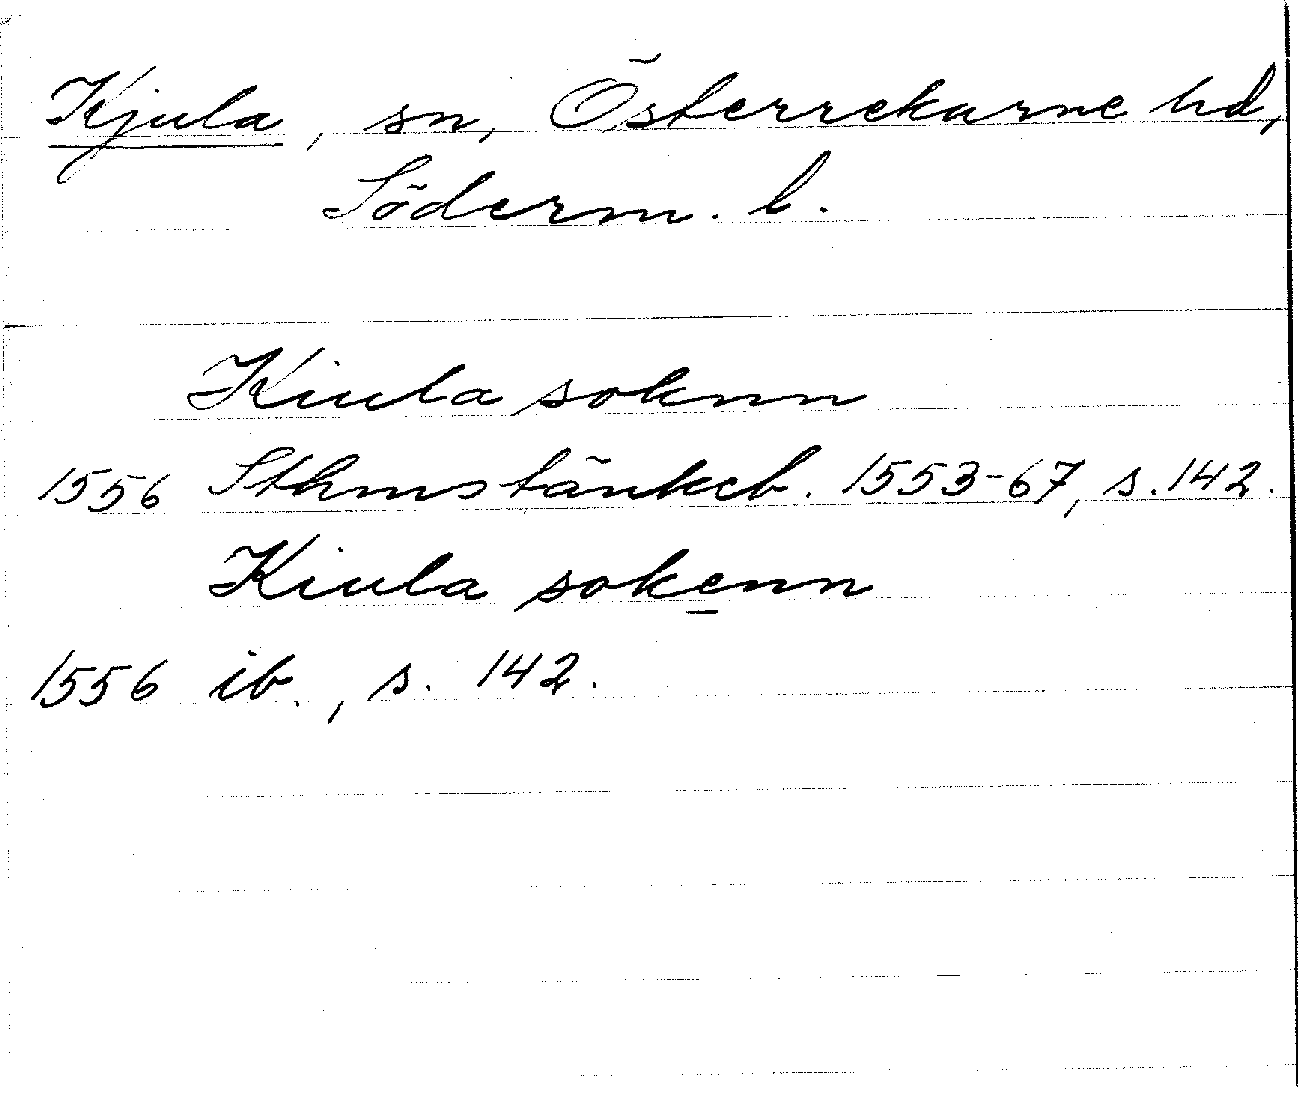 Kjula, sn, Österrekarne hd,
Söderm. l.
Kiula soknn
1556 Sthmstänkeb. 1553-67, s. 142.
Kiula sokenn
1556 ib., s. 142.